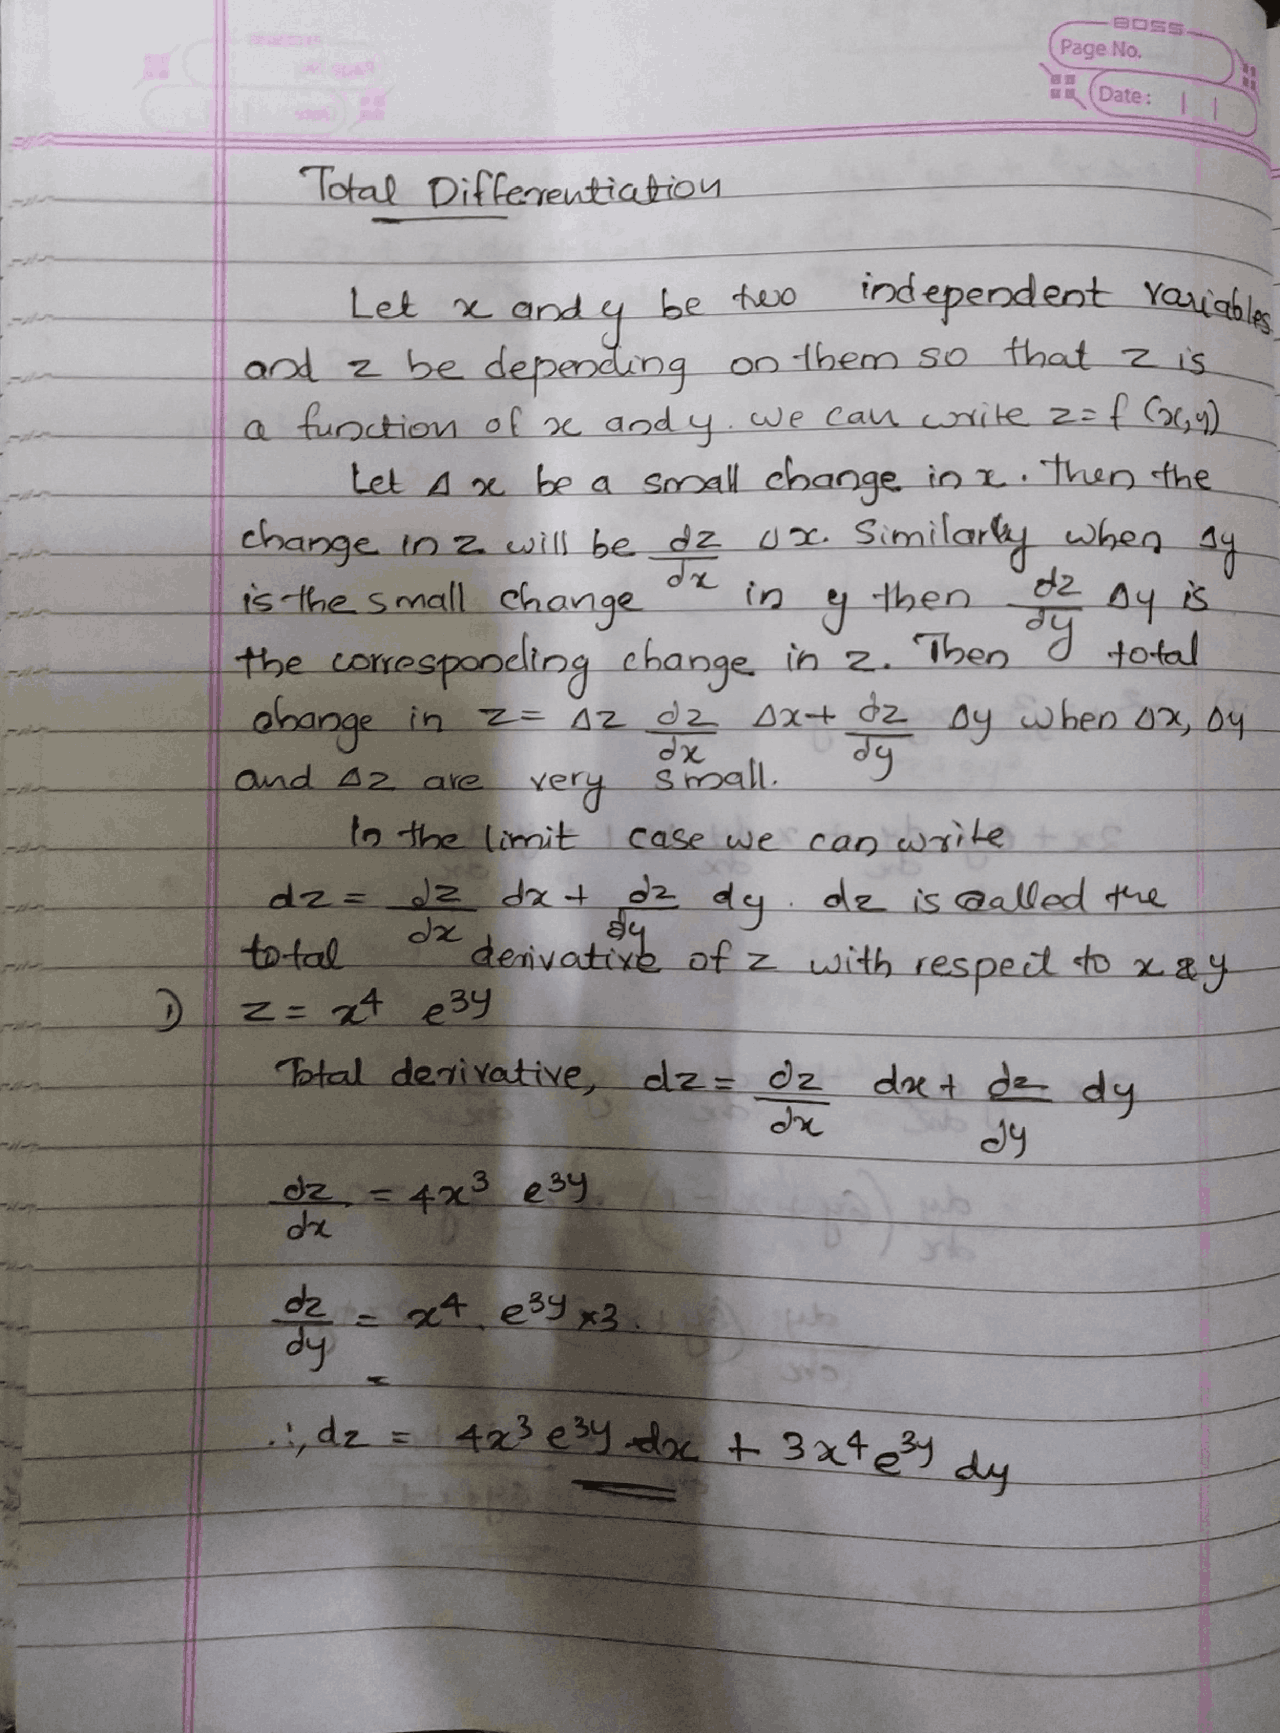 BOSS
Page No.
Date:
Total Differentiation
Let x and y be two independent variables
and z be depending on them so that z is
a function of x and y. we can write z = f (x,y)
Let Δx be a small change in x. Then the
change in z will be ∂z/∂x Δx. Similarly when Δy
is the small change in y then ∂z/∂y Δy is
the corresponding change in z. Then total
change in z = Δz ∂z/∂x Δx + ∂z/∂y Δy when Δx, Δy
and Δz are very small.
In the limit case we can write
dz = ∂z/∂x dx + ∂z/∂y dy. dz is called the
total derivative of z with respect to x & y
1) z = x⁴ e³ʸ
Total derivative, dz = ∂z/∂x dx + ∂z/∂y dy
∂z/∂x = 4x³ e³ʸ.
∂z/∂y = x⁴. e³ʸ × 3.
=
∴, dz = 4x³ e³ʸ dx + 3x⁴ e³ʸ dy